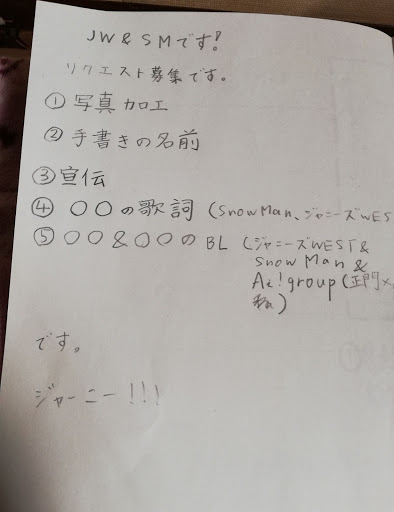 JW&SMです!
リクエスト募集です。
①写真加工
②手書きの名前
③宣伝
④○○の歌詞(SnowMan、ジャニーズWES
⑤○○&○○のBL(ジャニーズWEST&
SnowMan&
Ae!group(正門×
ねぇ)
です。
ジャーニー!!!